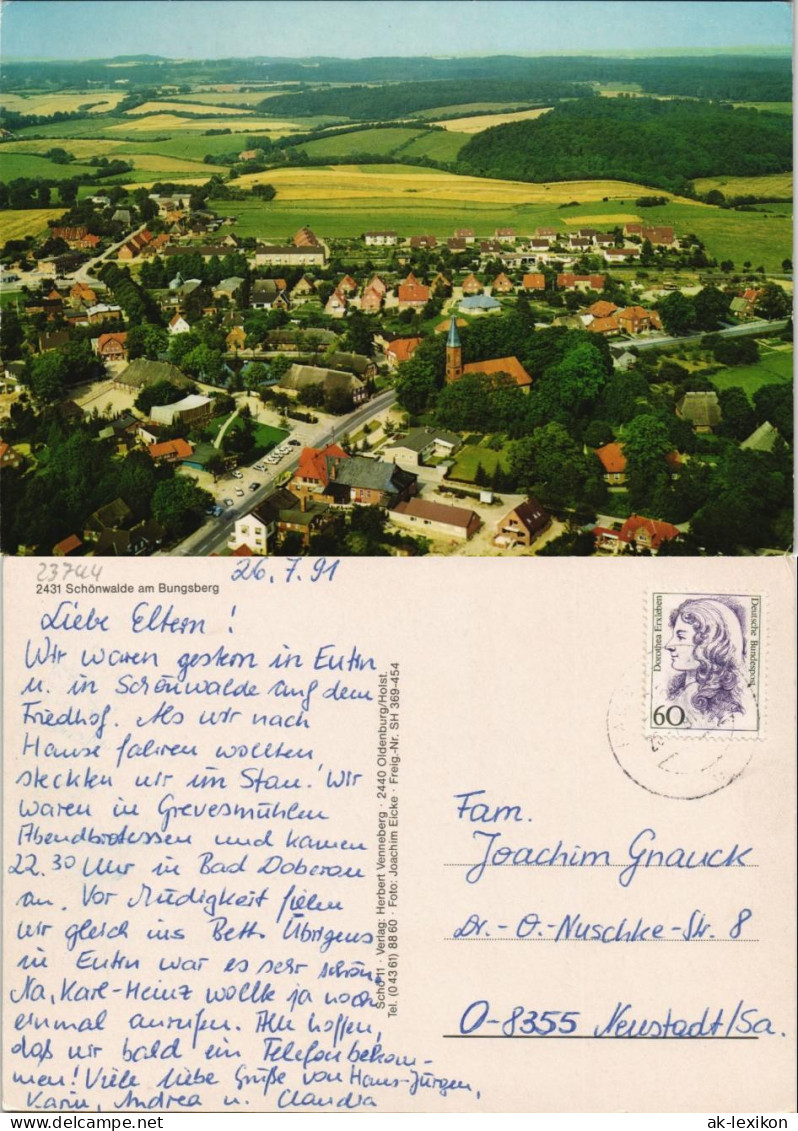 23744
26.7.91
2431 Schönwalde am Bungsberg
Liebe Eltern!
Wir waren gestern in Eutin
u. in Schönwalde auf dem
Friedhof. Als wir nach
Hause fahren wollten
steckten wir im Stau. Wir
waren in Grevesmühlen
Abendbrotessen und kamen
22.30 Uhr in Bad Doberan
an. Vor Müdigkeit fielen
wir gleich ins Bett. Übrigens
in Eutin war es sehr schön.
Na, Karl-Heinz wollte ja noch
einmal anrufen. Alle hoffen,
daß wir bald ein Telefon bekom-
men! Viele liebe Grüße von Hans-Jürgen,
Karin, Andrea u. Claudia
Scho 11 · Verlag: Herbert Venneberg · 2440 Oldenburg/Holst.
Tel. (0 43 61) 88 60 · Foto: Joachim Eicke · Freig.-Nr. SH 369-454
Dorothea Erxleben
Deutsche Bundespost
60
Fam.
Joachim Gnauck
Dr.-O.-Nuschke-Str. 8
O-8355 Neustadt/Sa.
ak-lexikon